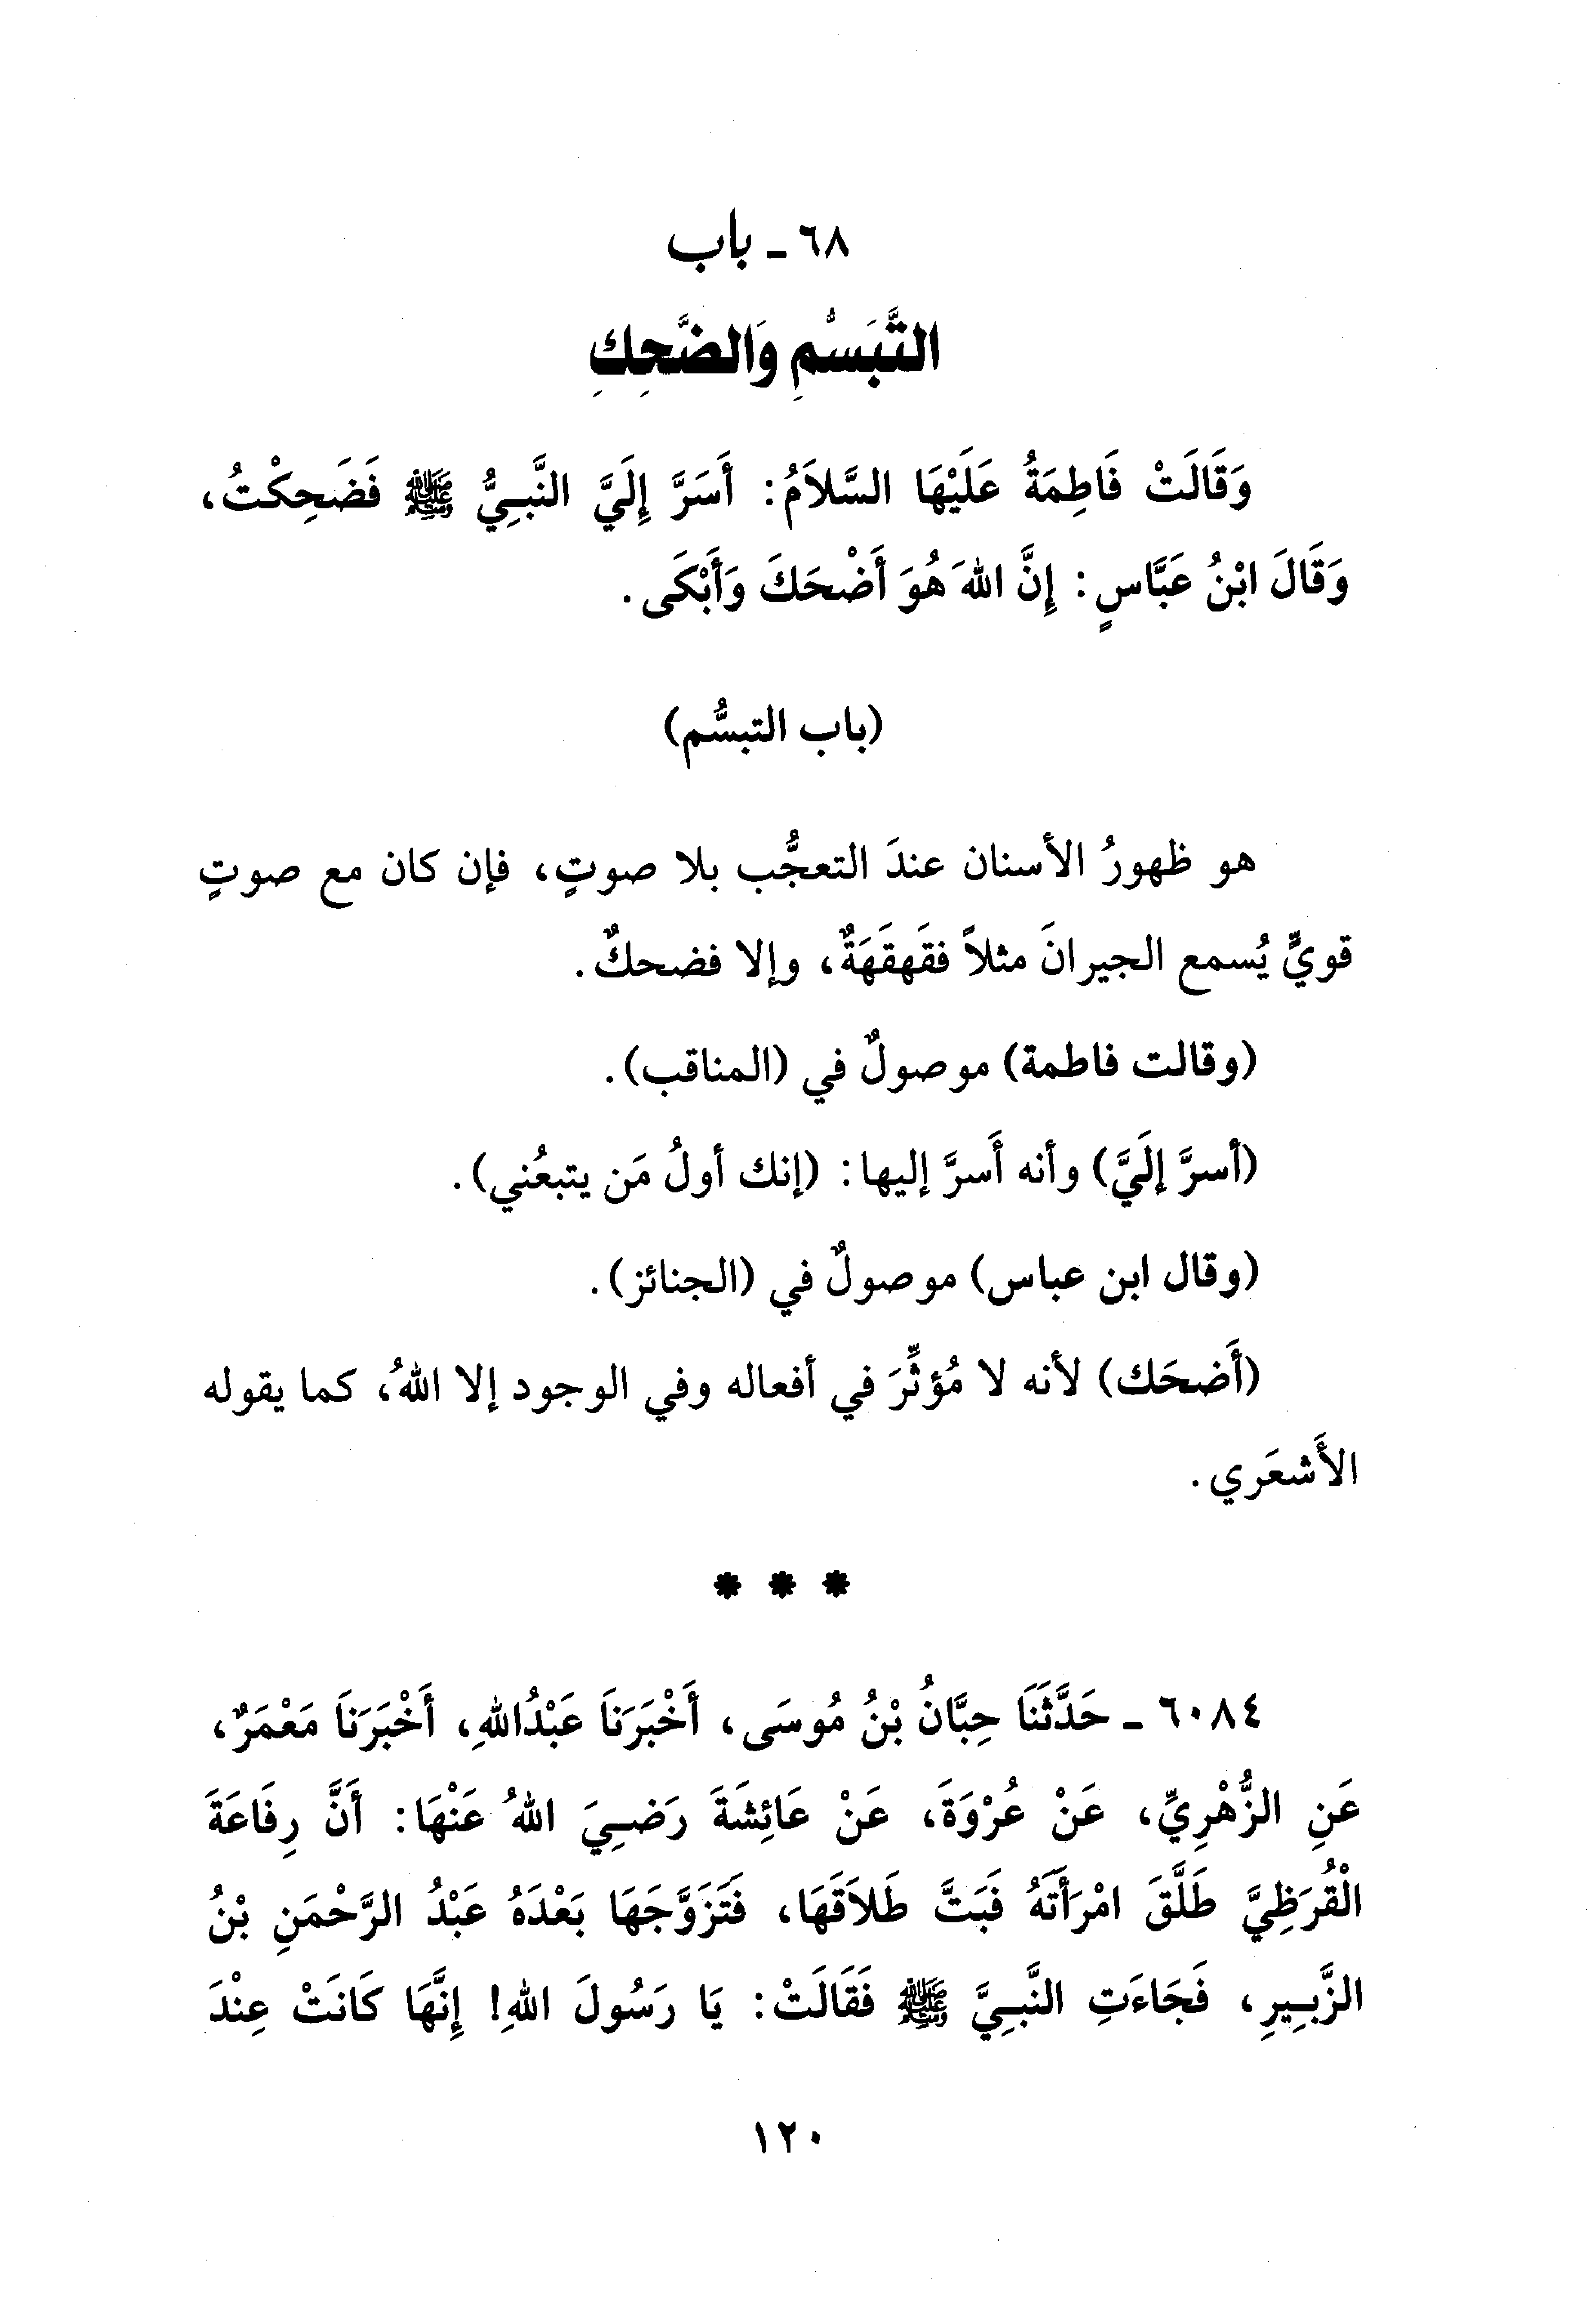 ٦٨ - باب
التَّبَسُّمِ وَالضَّحِكِ
وَقَالَتْ فَاطِمَةُ عَلَيْهَا السَّلاَمُ: أَسَرَّ إِلَيَّ النَّبِيُّ ﷺ فَضَحِكْتُ،
وَقَالَ ابْنُ عَبَّاسٍ: إِنَّ اللهَ هُوَ أَضْحَكَ وَأَبْكَى.
(باب التبسُّم)
هو ظهورُ الأسنان عندَ التعجُّب بلا صوتٍ، فإن كان مع صوتٍ
قويٍّ يُسمع الجيرانَ مثلاً فقَهقَهَةٌ، وإلا فضحكٌ.
(وقالت فاطمة) موصولٌ في (المناقب).
(أسرَّ إلَيَّ) وأنه أَسرَّ إليها: (إنك أولُ مَن يتبعُني).
(وقال ابن عباس) موصولٌ في (الجنائز).
(أَضحَك) لأنه لا مُؤثِّرَ في أفعاله وفي الوجود إلا اللهُ، كما يقوله
الأَشعَري.
* * *
٦٠٨٤ - حَدَّثَنَا حِبَّانُ بْنُ مُوسَى، أَخْبَرَنَا عَبْدُاللهِ، أَخْبَرَنَا مَعْمَرٌ،
عَنِ الزُّهْرِيِّ، عَنْ عُرْوَةَ، عَنْ عَائِشَةَ رَضِيَ اللهُ عَنْهَا: أَنَّ رِفَاعَةَ
الْقُرَظِيَّ طَلَّقَ امْرَأَتَهُ فَبَتَّ طَلاَقَهَا، فَتَزَوَّجَهَا بَعْدَهُ عَبْدُ الرَّحْمَنِ بْنُ
الزَّبِيرِ، فَجَاءَتِ النَّبِيَّ ﷺ فَقَالَتْ: يَا رَسُولَ اللهِ! إِنَّهَا كَانَتْ عِنْدَ
١٢٠